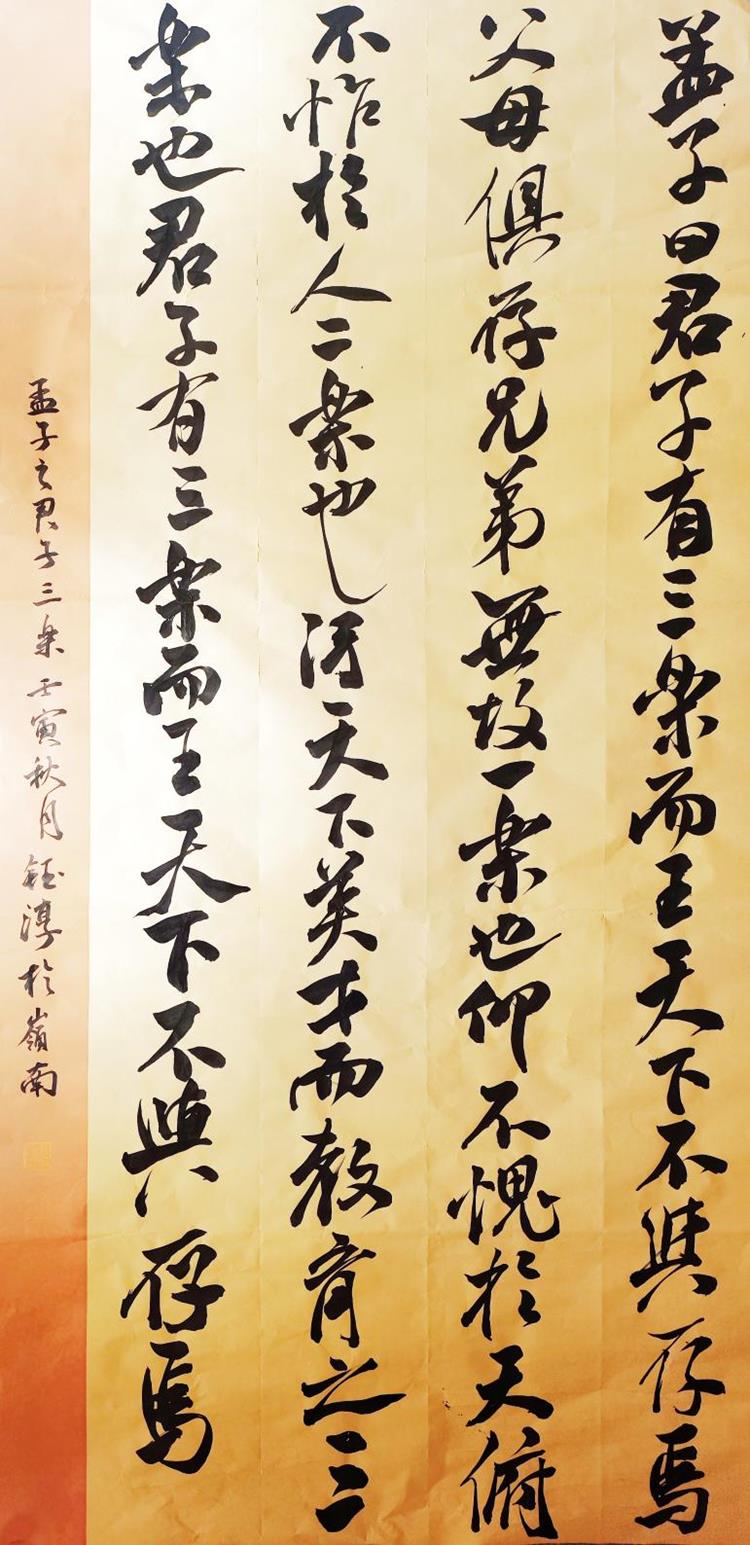 孟子曰君子有三樂而王天下不與存焉
父母俱存兄弟無故一樂也仰不愧於天俯
不怍於人二樂也得天下英才而教育之三
樂也君子有三樂而王天下不與存焉
孟子之君子三樂 壬寅秋月鈺濤於嶺南